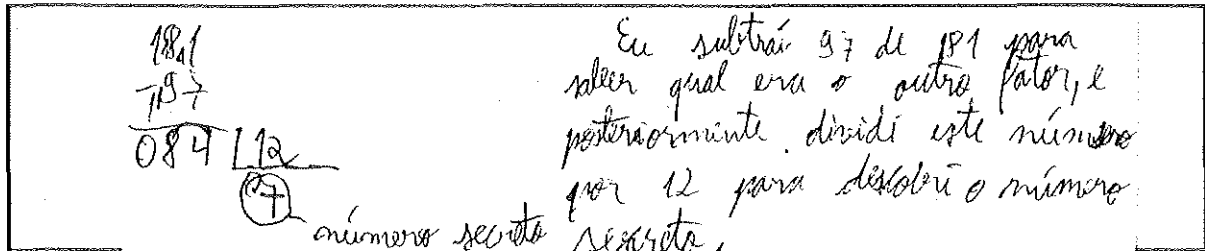 181
- 97
084 | 12
7
número secreto
Eu subtraí 97 de 181 para
saber qual era o outro fator, e
posteriormente dividi este número
por 12 para descobri o número
secreto.